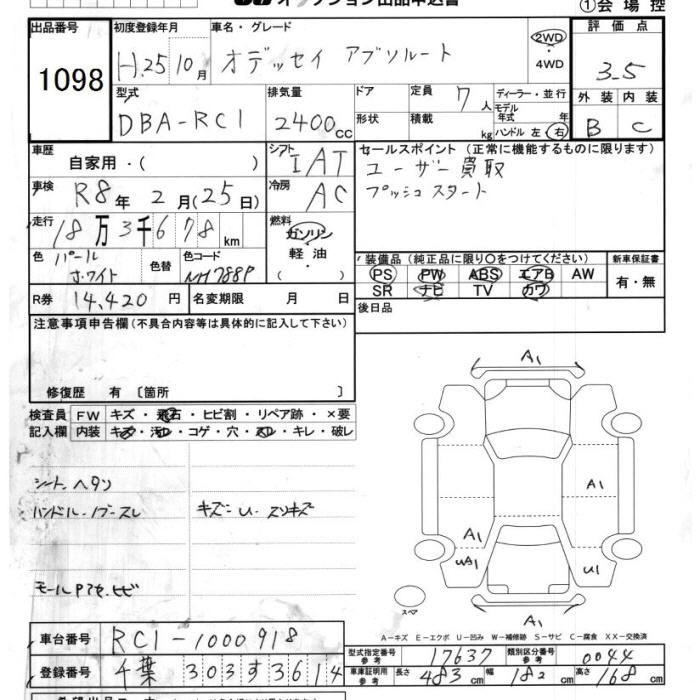 オークション出品申込書
①会場控
出品番号 1098
初度登録年月 H.25 10月
車名・グレード オデッセイ アブソルート
2WD・4WD
評価点 3.5
外装 B 内装 C
型式 DBA-RC1
排気量 2400cc
ドア 形状
定員 7人
積載 kg
ディーラー・並行
モデル年式 年
ハンドル 左 右
車歴 自家用・( )
シフト IAT
セールスポイント (正常に機能するものに限ります)
ユーザー買取
プッシュスタート
車検 R8年 2月(25日)
冷房 AC
走行 18万3千678km
燃料 ガソリン・軽油・
色 パールホワイト
色替
色コード NH788P
装備品 (純正品に限り○をつけてください)
PS PW ABS エアB AW
SR ナビ TV カワ
新車保証書 有・無
R券 14,420円
名変期限 月 日
後日品
注意事項申告欄 (不具合内容等は具体的に記入して下さい)
修復歴 有 〔箇所 〕
検査員記入欄
FW キズ・飛石・ヒビ割・リペア跡・×要
内装 キズ・汚れ・コゲ・穴・スレ・キレ・破レ
シート ヘタリ
ハンドル・ノブ・スレ
キズ・U・スリキズ
ヒビ
A1
A1
A1
UA1
U1
A1
スペア
A－キズ E－エクボ U－凹み W－補修跡 S－サビ C－腐食 XX－交換済
車台番号 RC1-1000918
登録番号 千葉 303す3614
型式指定番号 参考 17637
類別区分番号 参考 0044
車庫証明用 参考 長さ 483cm 幅 182cm 高さ 168cm